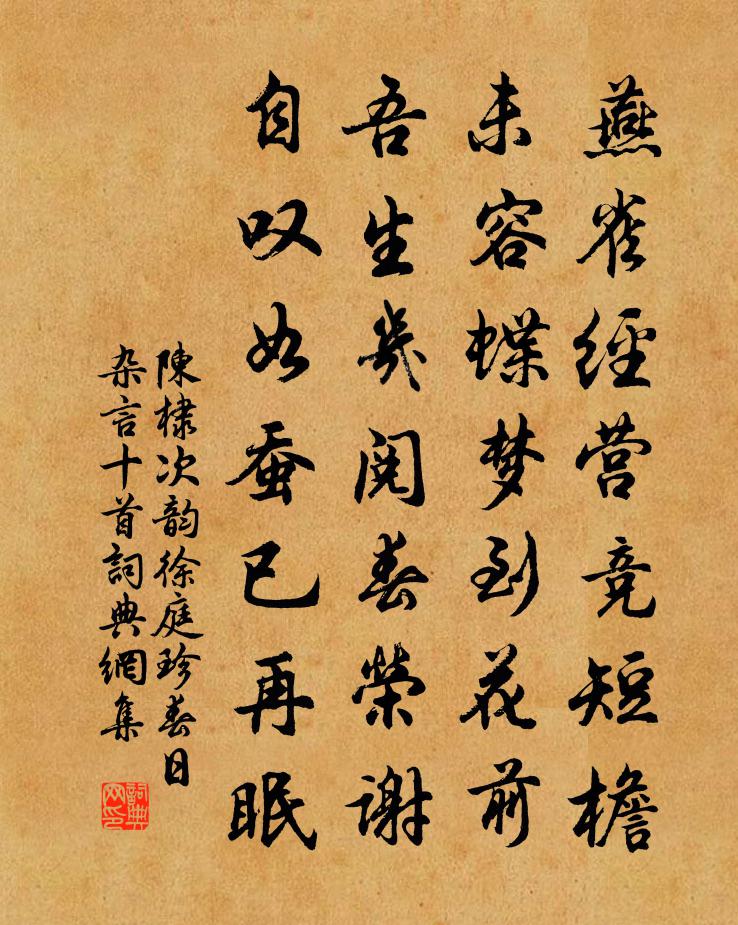 燕雀經营竞短檐
未容蝶梦到花前
吾生幾閱春荣谢
自叹如蚕已再眠
陳棣次韵徐庭珍春日
杂言十首詞典網集
詞典网印